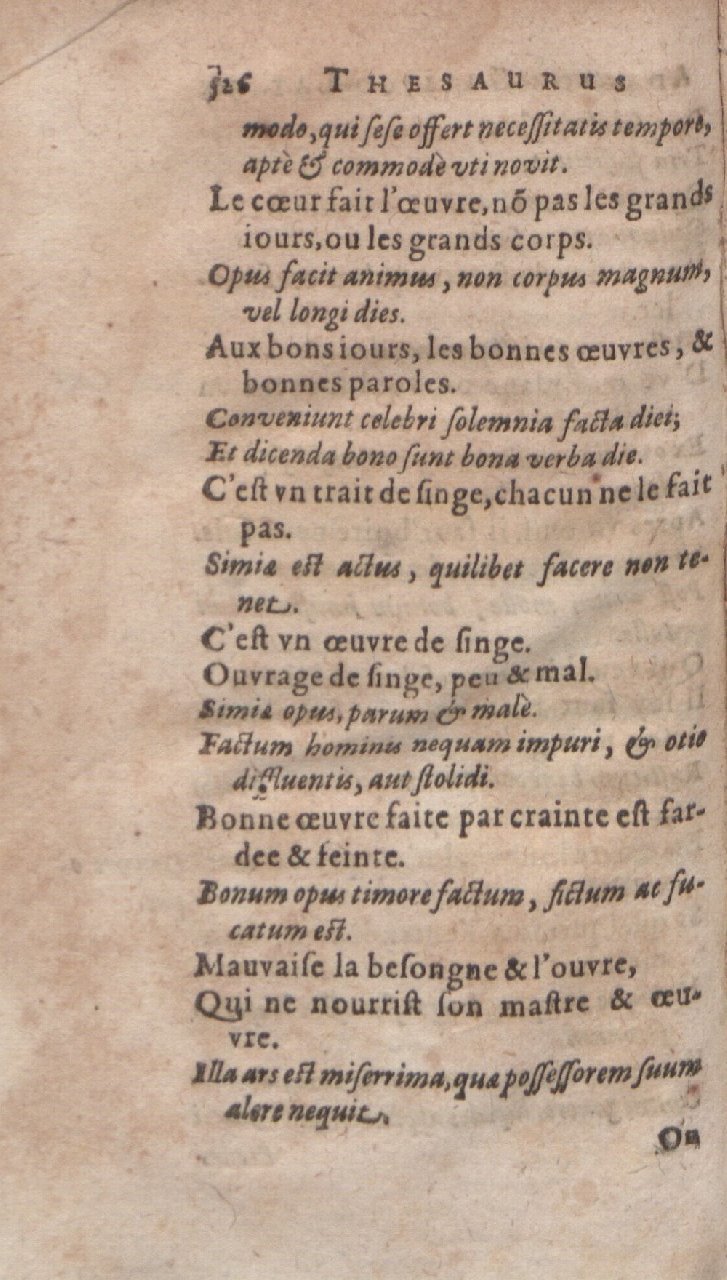 526 THESAURUS
modo, qui ſeſe offert neceſſitatis tempore,
aptè & commodè vti novit.
Le cœur fait l'œuvre, nõ pas les grands
iours, ou les grands corps.
Opus facit animus, non corpus magnum,
vel longi dies.
Aux bons iours, les bonnes œuvres, &
bonnes paroles.
Conveniunt celebri ſolemnia facta diei;
Et dicenda bono ſunt bona verba die.
C'eſt vn trait de ſinge, chacun ne le fait
pas.
Simiæ eſt actus, quilibet facere non te-
net.
C'eſt vn œuvre de ſinge.
Ouvrage de ſinge, peu & mal.
Simiæ opus, parum & malè.
Factum hominis nequam impuri, & otio
diffluentis, aut ſtolidi.
Bonne œuvre faite par crainte eſt far-
dee & feinte.
Bonum opus timore factum, fictum ac fu-
catum eſt.
Mauvaiſe la beſongne & l'ouvre,
Qui ne nourriſt ſon maſtre & œu-
vre.
Illa ars eſt miſerrima, quæ poſſeſſorem ſuum
alere nequit.
On